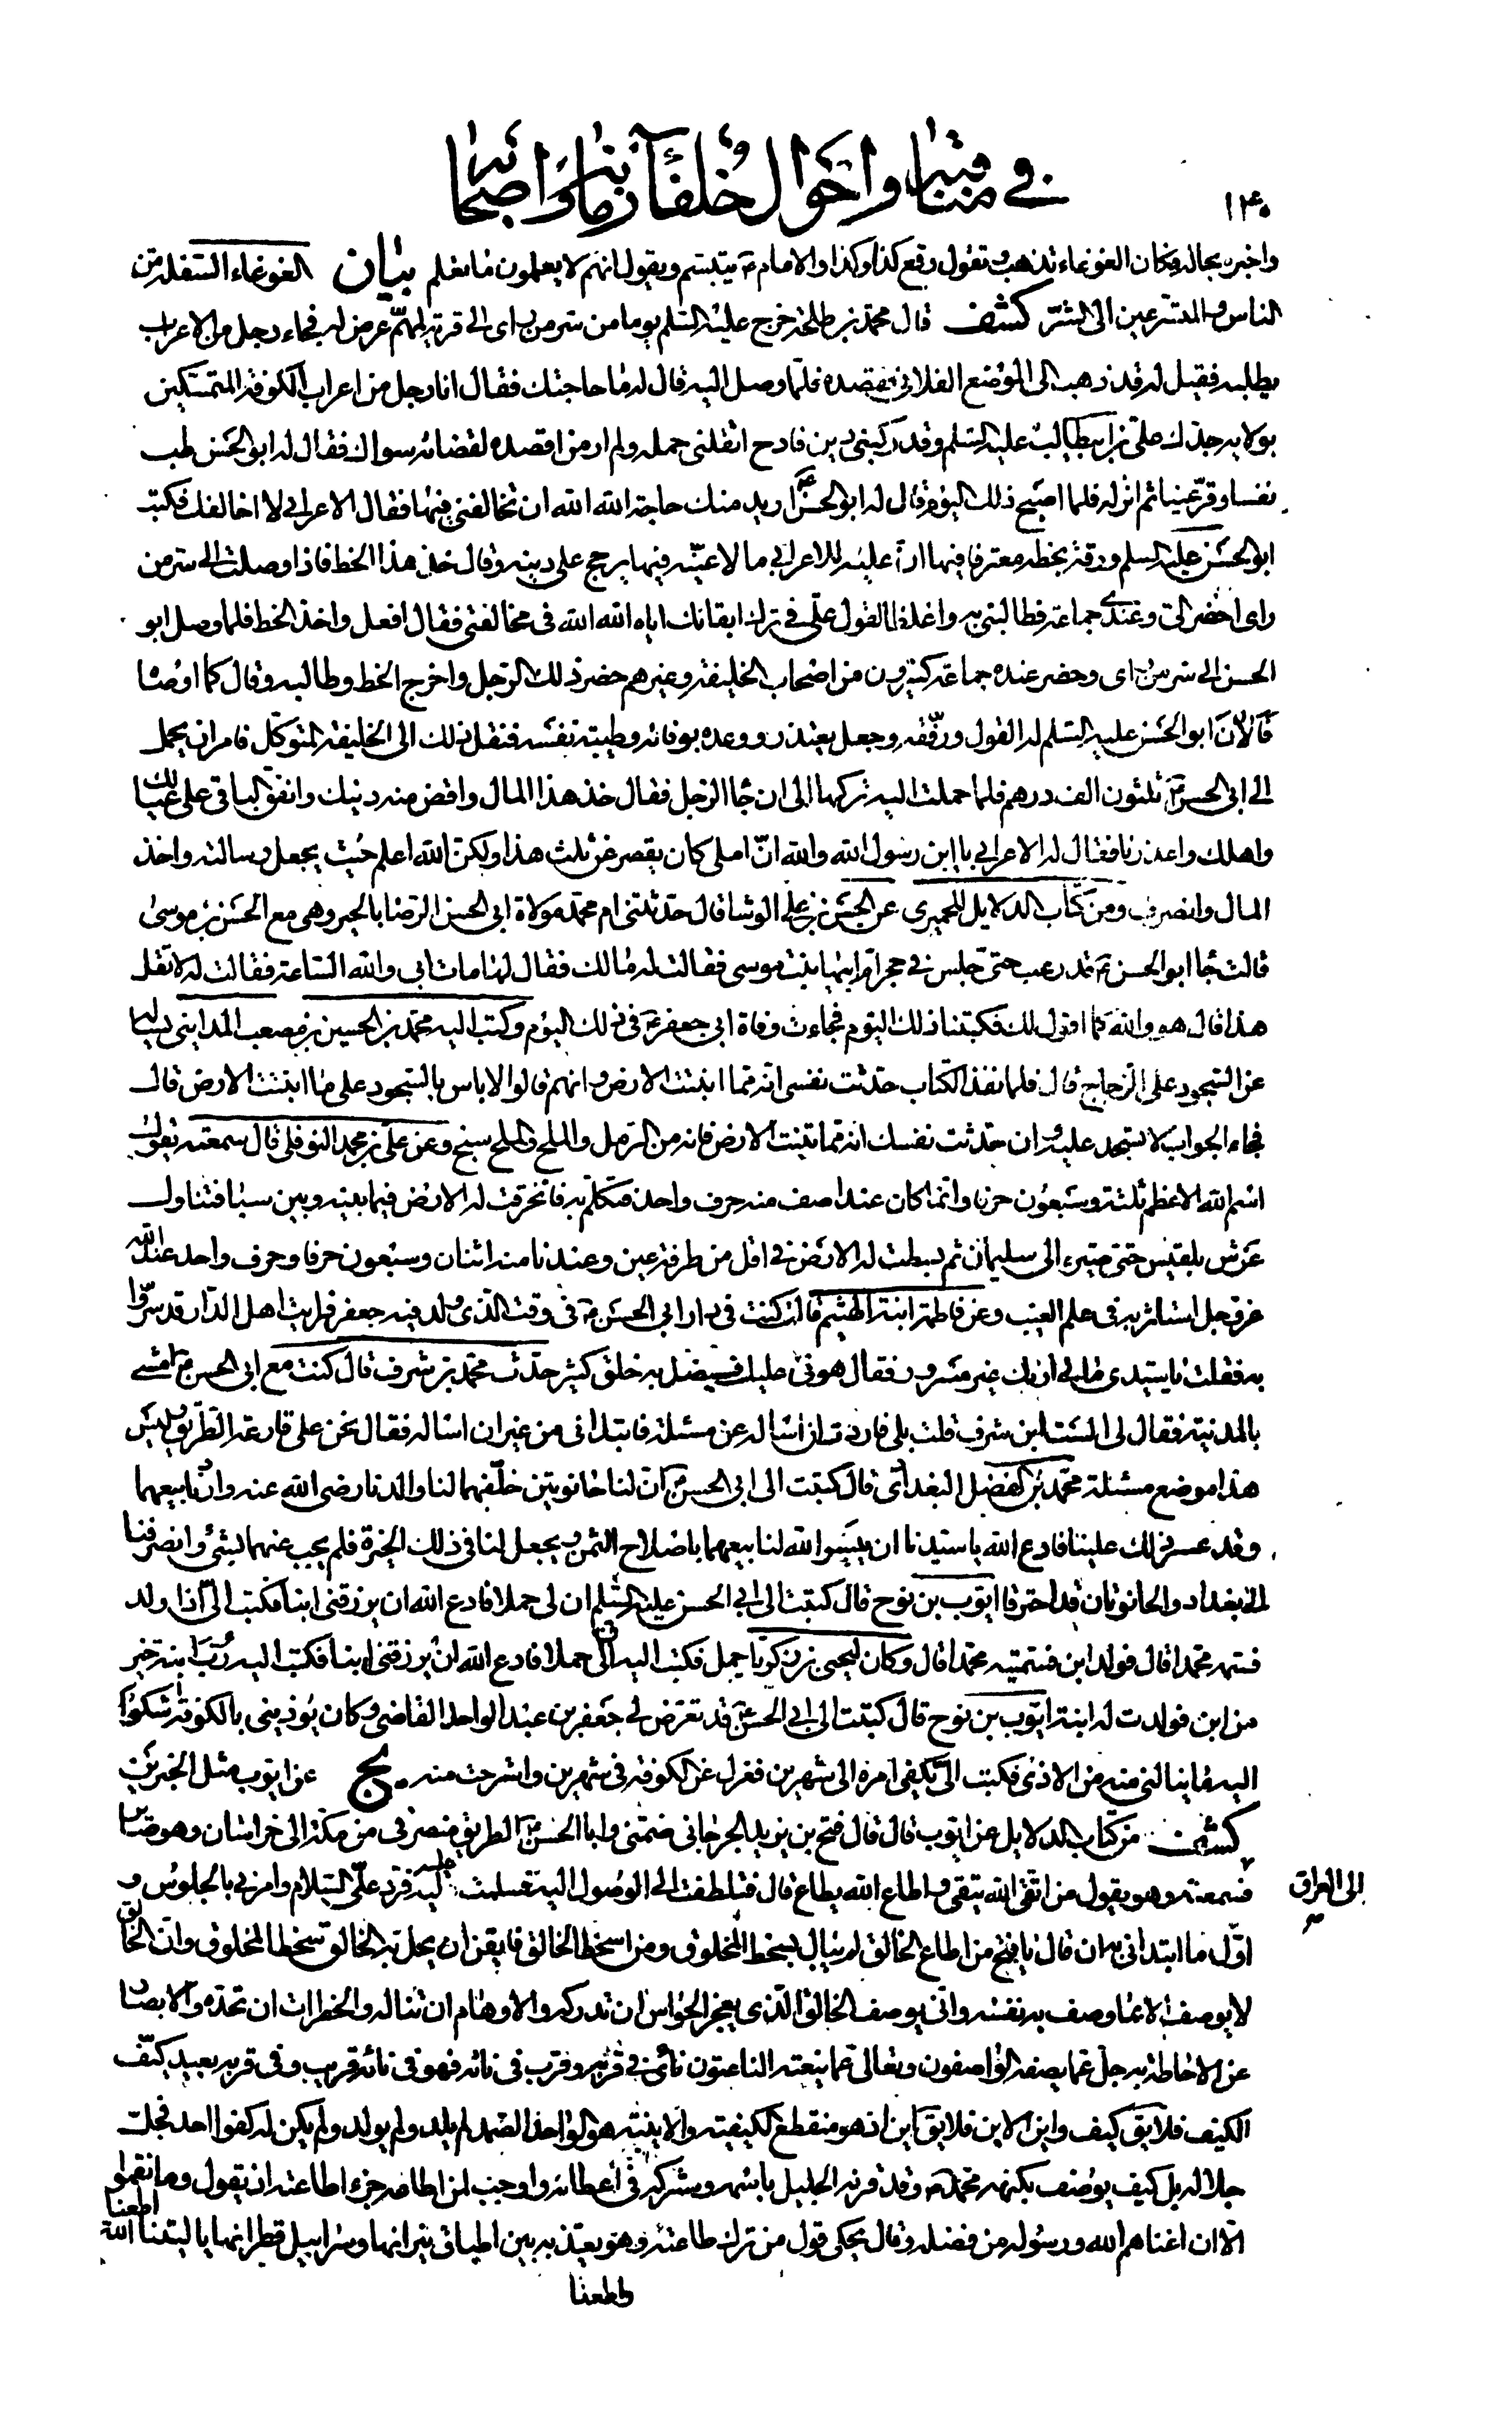 ١٣٠
في مناقبه واحوال خلفاء زمانه واصحابه
واخبره بحاله فكان الغوغاء تذهب وتقول وقع كذا وكذا والامام ع يتبسم ويقول انهم لا يعلمون ما نعلم بيان الغوغاء السفلة من
الناس والمتسرعين الى الشر كشف قال محمد بن طلحة خرج عليه السلم يوما من سر من راى الى قرية لمهم عرض له فجاء رجل من الاعراب
يطلبه فقيل له قد ذهب الى الموضع الفلاني فقصده فلما وصل اليه قال له ما حاجتك فقال انا رجل من اعراب الكوفة المتمسكين
بولاية جدك علي بن ابيطالب عليه السلم وقد ركبني دين فادح اثقلني حمله ولم ار من اقصده لقضائه سواك فقال له ابو الحسن طب
نفسا وقر عينا ثم انزله فلما اصبح ذلك اليوم قال له ابو الحسن ع اريد منك حاجة الله الله ان تخالفني فيها فقال الاعرابي لا اخالفك فكتب
ابو الحسن عليه السلم ورقة بخطه معترفا فيها ان عليه للاعرابي مالا عينه فيها يرجح على دينه وقال خذ هذا الخط فاذا وصلت الى سر من
راى احضر الي وعندي جماعة فطالبني به واغلظ القول علي في ترك ابقائك اياه الله الله في مخالفتي فقال افعل واخذ الخط فلما وصل ابو
الحسن الى سر من راى وحضر عنده جماعة كثيرون من اصحاب الخليفة وغيرهم حضر ذلك الرجل واخرج الخط وطالبه وقال كما اوصاه
فالان ابو الحسن عليه السلم له القول ورفقه وجعل يعتذر ووعده بوفائه وطيبة نفسه فنقل ذلك الى الخليفة المتوكل فامر ان يحمل
الى ابي الحسن ع ثلثون الف درهم فلما حملت اليه تركها الى ان جا الرجل فقال خذ هذا المال واقض منه دينك وانفق الباقي على عيالك
واهلك واعذرنا فقال له الاعرابي يا ابن رسول الله والله ان املي كان يقصر عن ثلث هذا ولكن الله اعلم حيث يجعل رسالته واخذ
المال وانصرف ومن كتاب الدلايل للحميري عن الحسن بن علي الوشا قال حدثتني ام محمد مولاة ابي الحسن الرضا بالحير وهي مع الحسن بن موسى
قالت جا ابو الحسن ع قد رعب حتى جلس في حجر ام ابيها بنت موسى فقالت له مالك فقال لها مات ابي والله الساعة فقالت له لا تقل
هذا قال هو والله كما اقول لك فكتبنا ذلك اليوم فجاءت وفاة ابي جعفر ع في ذلك اليوم وكتب اليه محمد بن الحسين بن مصعب المدايني يساله
عن السجود على الزجاج قال فلما نفذ الكتاب حدثت نفسي انه مما انبتت الارض وانهم قالوا لا باس بالسجود على ما انبتت الارض قال
فجاء الجواب لا تسجد عليه وان حدثت نفسك انه مما تنبت الارض فانه من الرمل والملح والملح سبخ وعن علي بن محمد النوفلي قال سمعته يقول
اسم الله الاعظم ثلثة وسبعون حرفا وانما كان عند اصف منه حرف واحد فتكلم به فانخرقت له الارض فيما بينه وبين سبا فتناول
عرش بلقيس حتى صيره الى سليمان ثم بسطت له الارض في اقل من طرفة عين وعندنا منه اثنان وسبعون حرفا وحرف واحد عند الله
عز وجل استاثر به في علم الغيب وعن فاطمة ابنة الهيثم قالت كنت في دار ابي الحسن ع في وقت الذي ولد فيه جعفر فرايت اهل الدار قد سروا
به فقلت يا سيدي مالي اراك غير مسرور فقال هوني عليك فسيضل به خلق كثير حدث محمد بن شرف قال كنت مع ابي الحسن ع امشي
بالمدنية فقال لي الست ابن شرف قلت بلى فاردت ان اساله عن مسئلة فابتداني من غير ان اساله فقال نحن على قارعة الطريق وليس
هذا موضع مسئلة محمد بن الفضل البغدادي قال كتبت الى ابي الحسن ع ان لنا حانوتين خلفهما لنا والدنا رضي الله عنه واردنا بيعهما
وقد عسر ذلك علينا فادع الله يا سيدنا ان ييسر الله لنا بيعهما باصلاح الثمن ويجعل لنا في ذلك الخيرة فلم يجب عنهما بشئ وانصرفنا
الى بغداد والحانوتان قد احترقا ايوب بن نوح قال كتبت الى ابي الحسن عليه السلم ان لي حملا فادع الله ان يرزقني ابنا فكتب الي اذا ولد
فسمه محمدا قال فولد ابن فسميته محمدا قال وكان ليحيى بن زكريا حمل فكتب اليه ان لي حملا فادع الله ان يرزقني ابنا فكتب اليه رب ابنة خير
من ابن فولدت له ابنة ايوب بن نوح قال كتبت الى ابي الحسن ع قد تعرض لي جعفر بن عبد الواحد القاضي وكان يؤذيني بالكوفة اشكو
اليه ما ينالني منه من الاذى فكتب الي تكفى امره الى شهرين فعزل عن الكوفة في شهرين واسترحت منه يج عن ايوب مثل الخبرين
كشف من كتاب الدلايل عن ايوب قال قال فتح بن يزيد الجرجاني ضمني وابا الحسن ع الطريق منصرفي من مكة الى خراسان وهو صاير
الى العراق
فسمعته وهو يقول من اتقى الله يتقى واطاع الله يطاع قال فتلطفت الى الوصول اليه فسلمت عليه فرد علي السلام وامرني بالجلوس و
اول ما ابتداني به ان قال يا فتح من اطاع الخالق لم يبال بسخط المخلوق ومن اسخط الخالق فايقن ان يحل به الخالق سخط المخلوق وان الخالق
لا يوصف الا بما وصف به نفسه وانى يوصف الخالق الذي يعجز الحواس ان تدركه والاوهام ان تناله والخطرات ان تحده والابصار
عن الاحاطة به جل عما يصفه الواصفون وتعالى عما ينعته الناعتون نأى في قربه وقرب في نائه فهو في نائه قريب وفي قربه بعيد كيف
الكيف فلا يق كيف واين الاين فلا يق اين اذ هو منقطع الكيفية والاينية هو الواحد الصمد لم يلد ولم يولد ولم يكن له كفوا احد فجل
جلاله بل كيف يوصف بكنهه محمد ص وقد قرنه الجليل باسمه وشركه في اعطائه واوجب لمن اطاعه جزء اطاعته اذ يقول وما نقموا
الا ان اغناهم الله ورسوله من فضله وقال يحكي قول من ترك طاعته وهو يعذبه بين اطباق نيرانها وسرابيل قطرانها يا ليتنا اطعنا الله
واطعنا